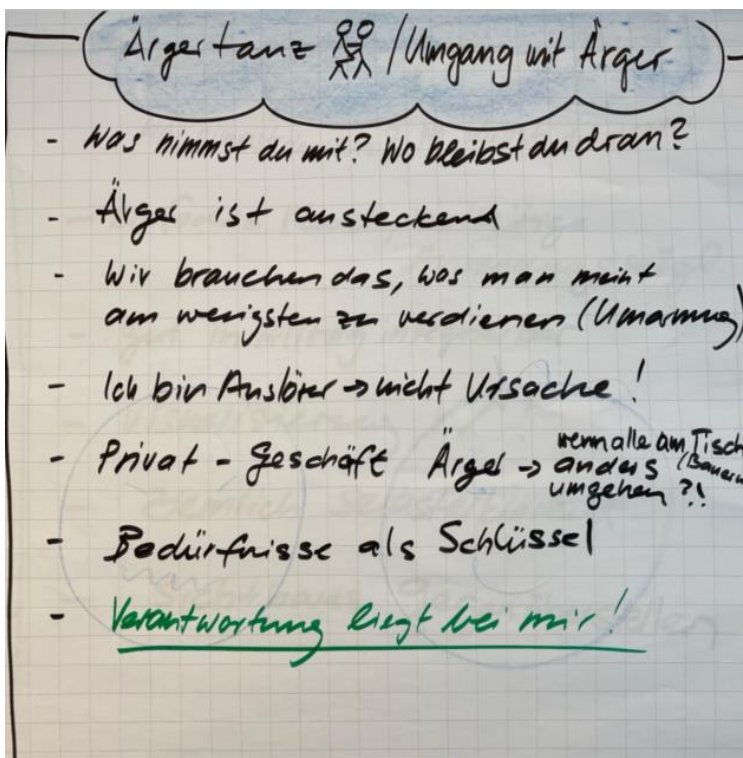 Ärgertanz / Umgang mit Ärger
- Was nimmst du mit? Wo bleibst du dran?
- Ärger ist ansteckend
- Wir brauchen das, was man meint
am wenigsten zu verdienen (Umarmung)
- Ich bin Auslöser → nicht Ursache!
- Privat - Geschäft Ärger → wenn alle am Tisch
anders (Bauern
umgehen?!
- Bedürfnisse als Schlüssel
- Verantwortung liegt bei mir!